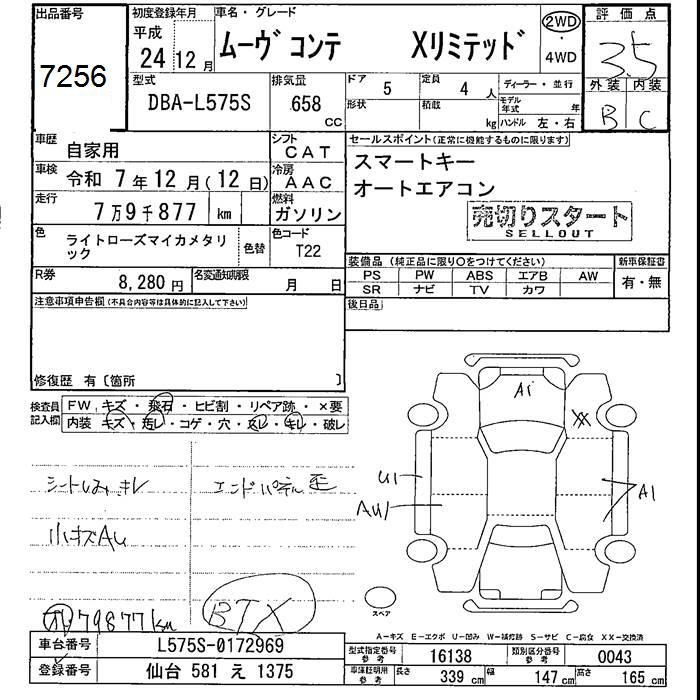 出品番号
7256
初度登録年月
平成
24 12 月
車名・グレード
ムーヴ コンテ Xリミテッド
2WD
・
4WD
評価点
3.5
外装 内装
B C
型式
DBA-L575S
排気量
658 cc
ドア 5
形状
定員 4 人
積載 kg
ディーラー・並行
モデル年式 年
ハンドル 左・右
車歴 自家用
シフト CAT
車検 令和 7年12月(12日)
冷房 AAC
走行 7万9千877 km
燃料 ガソリン
色 ライトローズマイカメタリック
色替
色コード T22
R券 8,280 円
名変通知期限 月 日
セールスポイント(正常に機能するものに限ります)
スマートキー
オートエアコン
売切りスタート
SELLOUT
装備品 (純正品に限り○をつけてください)
PS PW ABS エアB AW
SR ナビ TV カワ
新車保証書
有・無
後日品
注意事項申告欄(不具合内容等は具体的に記入して下さい)
修復歴 有〔箇所 〕
検査員記入欄
FW. キズ・飛石・ヒビ割・リペア跡・×要
内装 キズ・汚レ・コゲ・穴・・キレ・破レ
シートしみ、キレ
エンドパネル歪
小キズAu
79877km
BTX
A1
XX
U1
AU1
A1
スペア
A-キズ E-エクボ U-凹み W-補修跡 S-サビ C-腐食 XX-交換済
車台番号 L575S-0172969
登録番号 仙台 581 え 1375
型式指定番号 参考 16138
類別区分番号 参考 0043
車庫証明用 参考 長さ 339 cm 幅 147 cm 高さ 165 cm